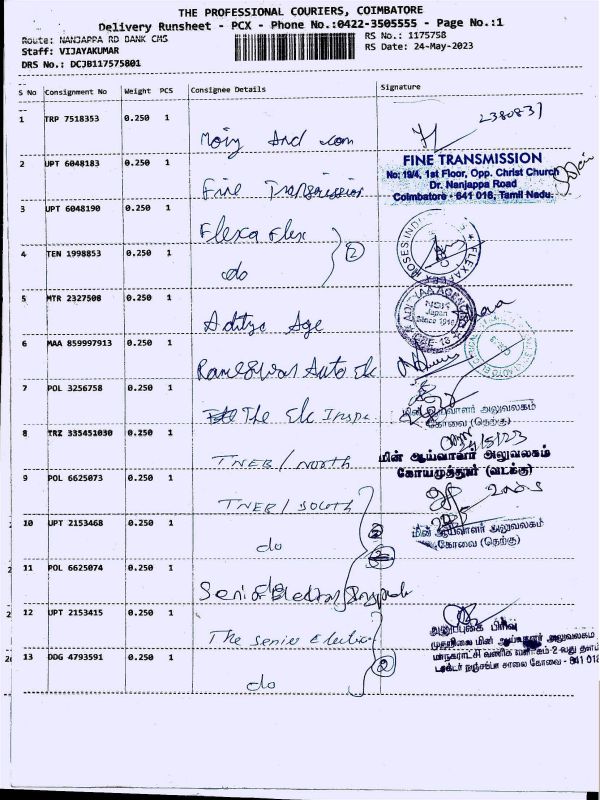 THE PROFESSIONAL COURIERS, COIMBATORE
Delivery Runsheet - PCX - Phone No.:0422-3505555 - Page No.:1
Route: NANJAPPA RD BANK CMS
RS No.: 1175758
Staff: VIJAYAKUMAR
RS Date: 24-May-2023
DRS No.: DCJB117575801
S No Consignment No Weight PCS Consignee Details Signature
1 TRP 7518353 0.250 1
2380837
2 UPT 6048183 0.250 1
Fine Transmission
FINE TRANSMISSION
No: 19/4, 1st Floor, Opp. Christ Church
Dr. Nanjappa Road
Coimbatore - 641 018, Tamil Nadu
3 UPT 6048190 0.250 1
Flexa Flex
2
4 TEN 1998853 0.250 1
do
5 MTR 2327508 0.250 1
Aditya Age
6 MAA 859997913 0.250 1
Rameswar Auto Elc
7 POL 3256758 0.250 1
The Elc Inspe.
மின் ஆய்வாளர் அலுவலகம்
கோவை (தெற்கு)
8 TRZ 335451030 0.250 1
TNEB / NORTH
மின் ஆய்வாளர் அலுவலகம்
கோயமுத்தூர் (வடக்கு)
9 POL 6625073 0.250 1
TNEB / SOUTH
10 UPT 2153468 0.250 1
do
2
மின் ஆய்வாளர் அலுவலகம்
கோவை (தெற்கு)
11 POL 6625074 0.250 1
12 UPT 2153415 0.250 1
The Senior Electric
முதுநிலை மின் ஆய்வாளர் அலுவலகம்
13 DDG 4793591 0.250 1
do
2